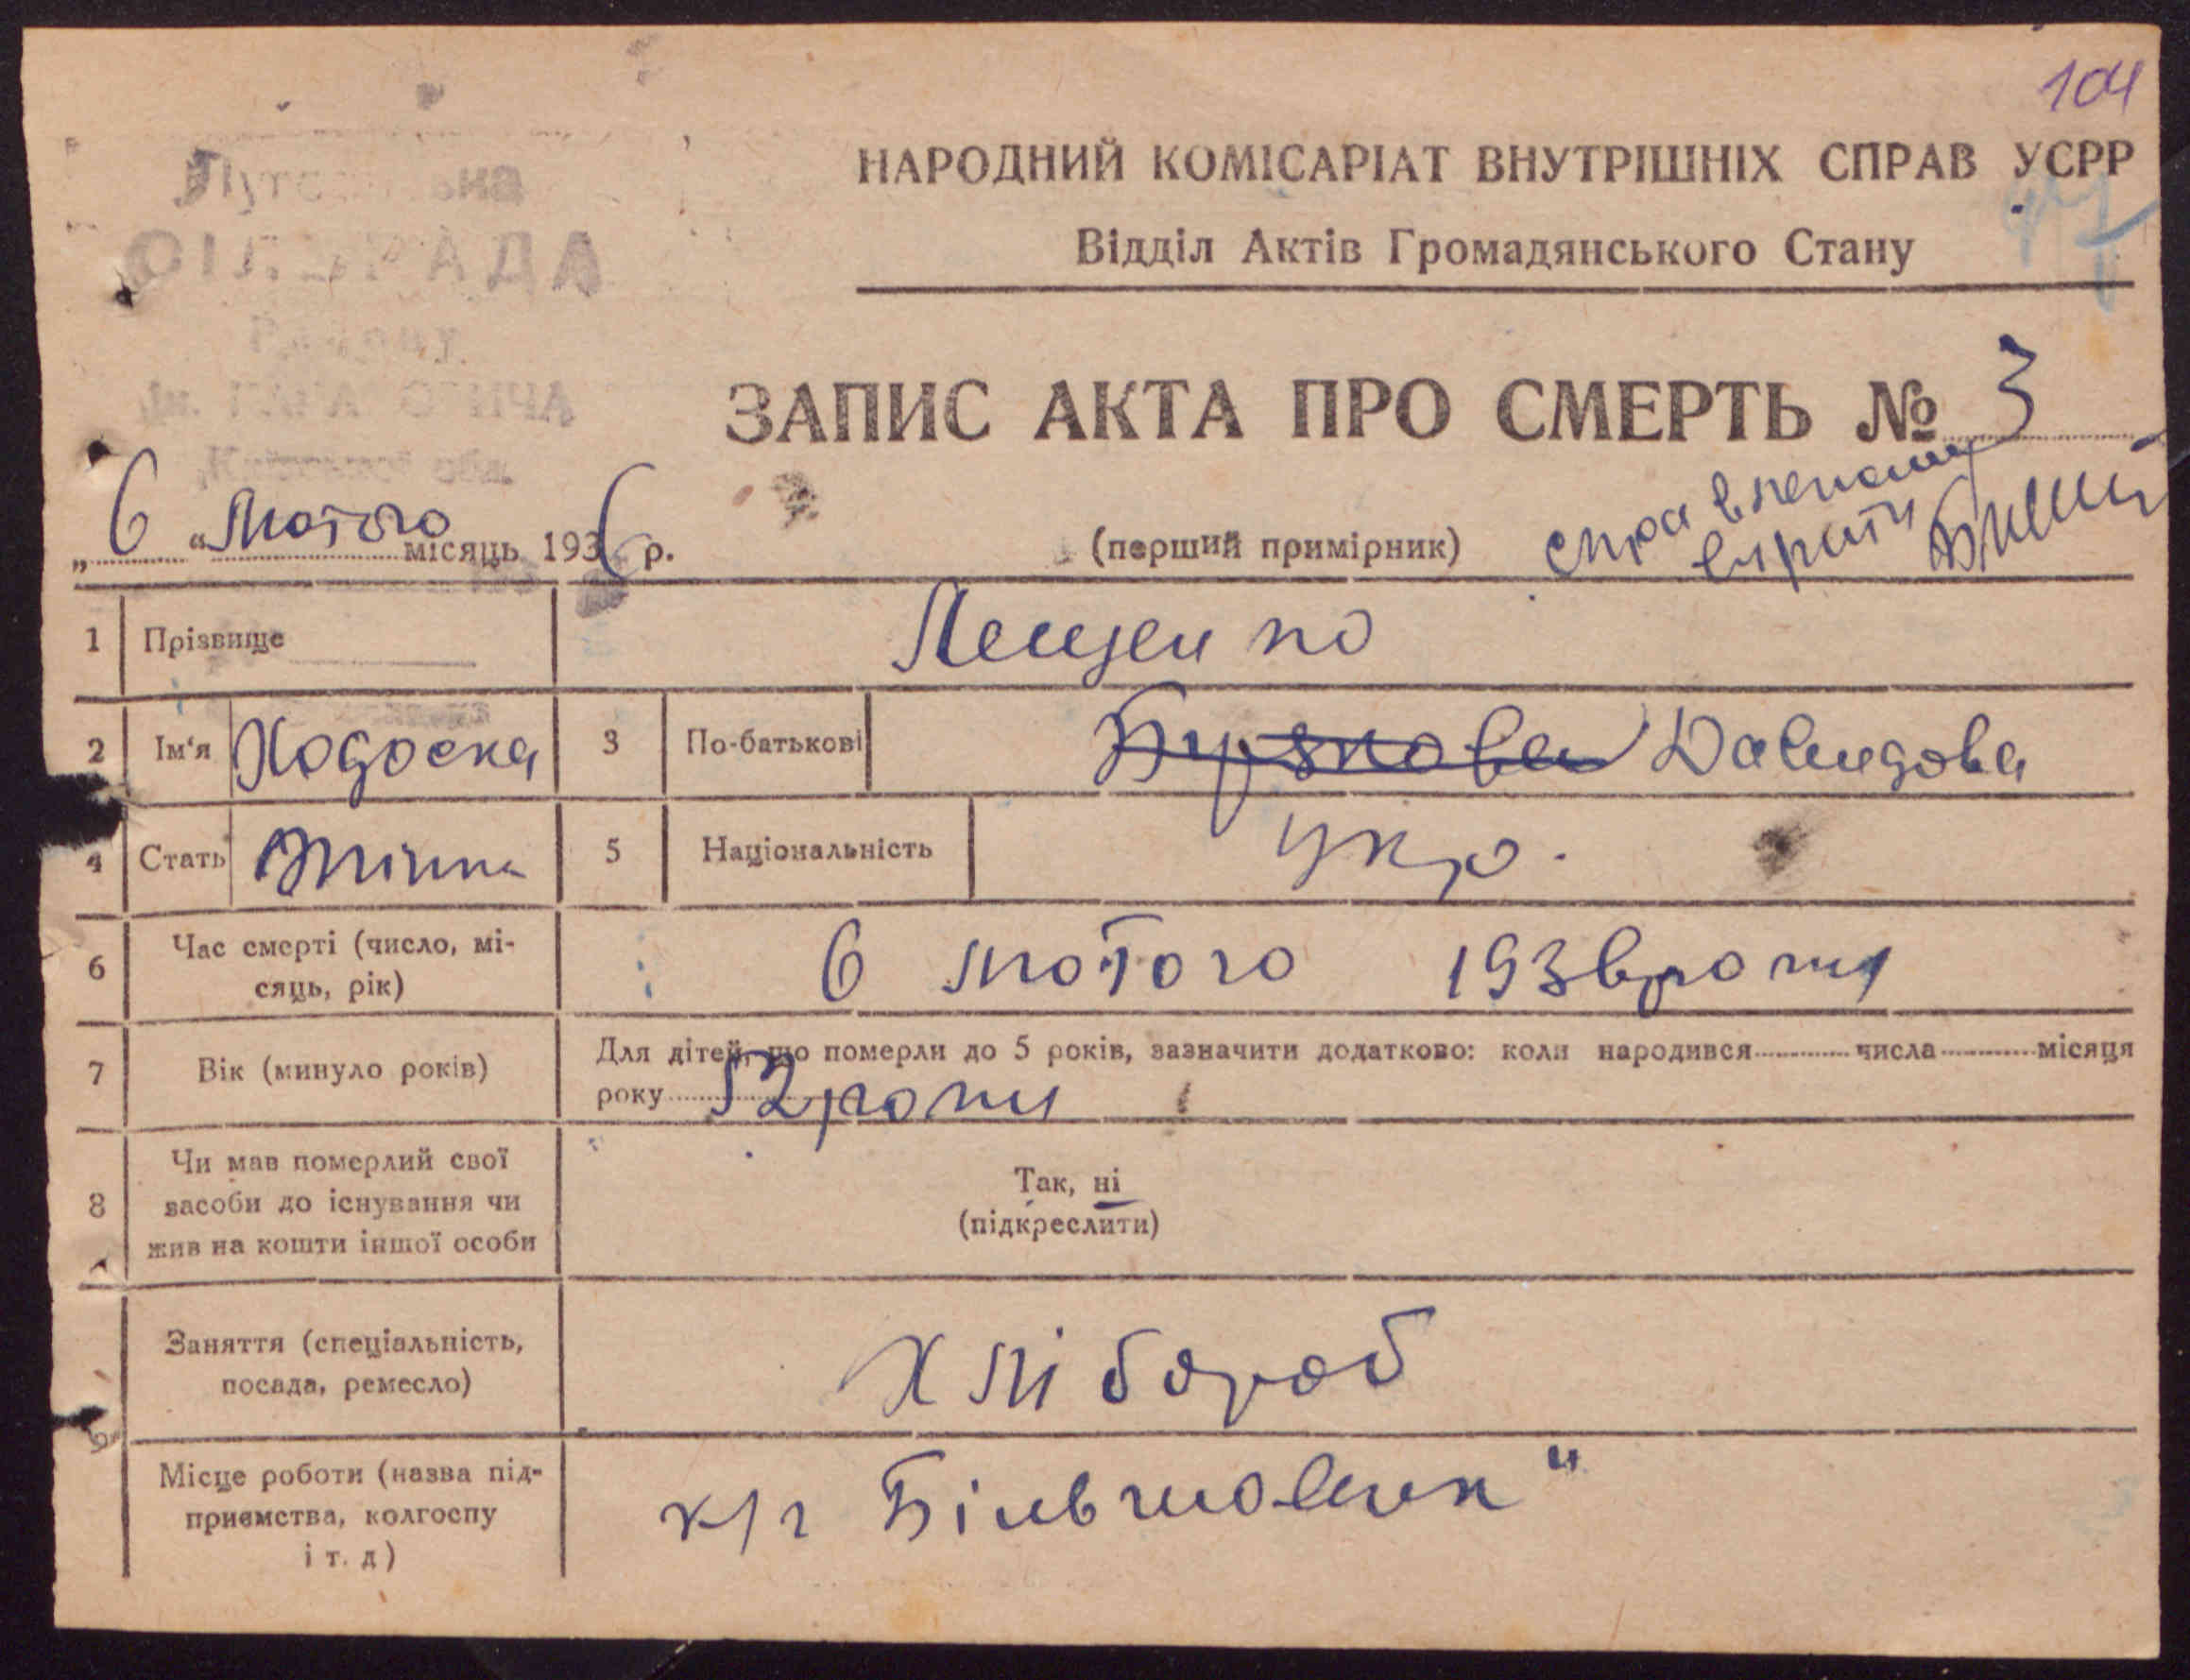 104
НАРОДНИЙ КОМІСАРІАТ ВНУТРІШНІХ СПРАВ УСРР
Відділ Актів Громадянського Стану
ЗАПИС АКТА ПРО СМЕРТЬ № 3
„ 6 “ Лютого місяць 1936 р.
(перший примірник)
1 Прізвище Лещенко
2 Ім'я Ходоска 3 По-батькові Давидова
4 Стать Жінка 5 Національність укр.
6 Час смерті (число, мі-
сяць, рік) 6 лютого 1936 року
7 Вік (минуло років) Для дітей, що померли до 5 років, зазначити додатково: коли народився числа місяця
року 52 роки
8 Чи мав померлий свої
засоби до існування чи
жив на кошти іншої особи
Так, ні
(підкреслити)
9 Заняття (спеціальність,
посада, ремесло) Хлібороб
Місце роботи (назва під-
приємства, колгоспу
і т. д) к/г Більшовик"